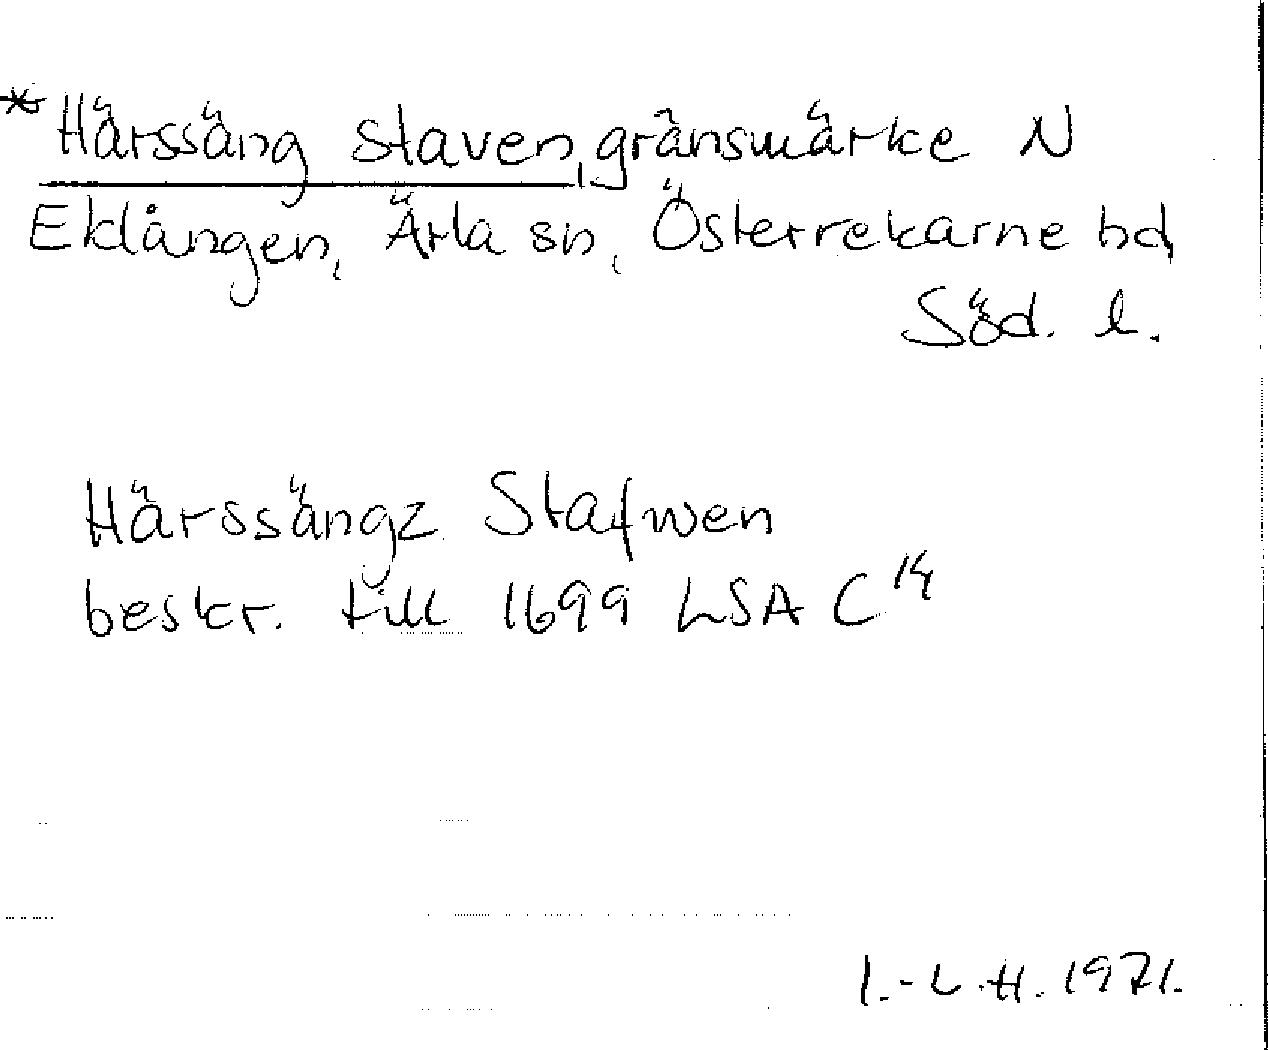 * Härssäng staven, gränsmärke N
Eklången, Ärla sn, Österrekarne hd
Söd. l.
Härssängz Stafwen
beskr. till 1699 LSA C 14
I.-L.H. 1971.